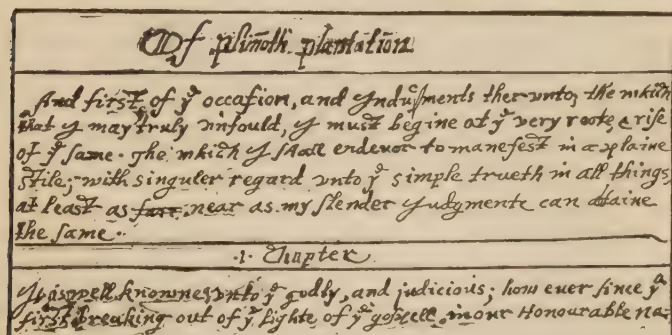 Of plimoth plantation
And first of yᵉ occasion, and Indusments ther unto; the which
that I may truly unfould, I must begine at yᵉ very roote, & rise
of yᵉ same. The which I shall endevor to manefest in a plaine
stile; with singuler regard unto yᵉ simple trueth in all things,
at least as near as my slender Judgmente can attaine
the same.
.1. Chapter
It is well knowne unto yᵉ godly, and judicious; how ever since yᵉ
first breaking out of yᵉ lighte of yᵉ gospell, in our Honourable na